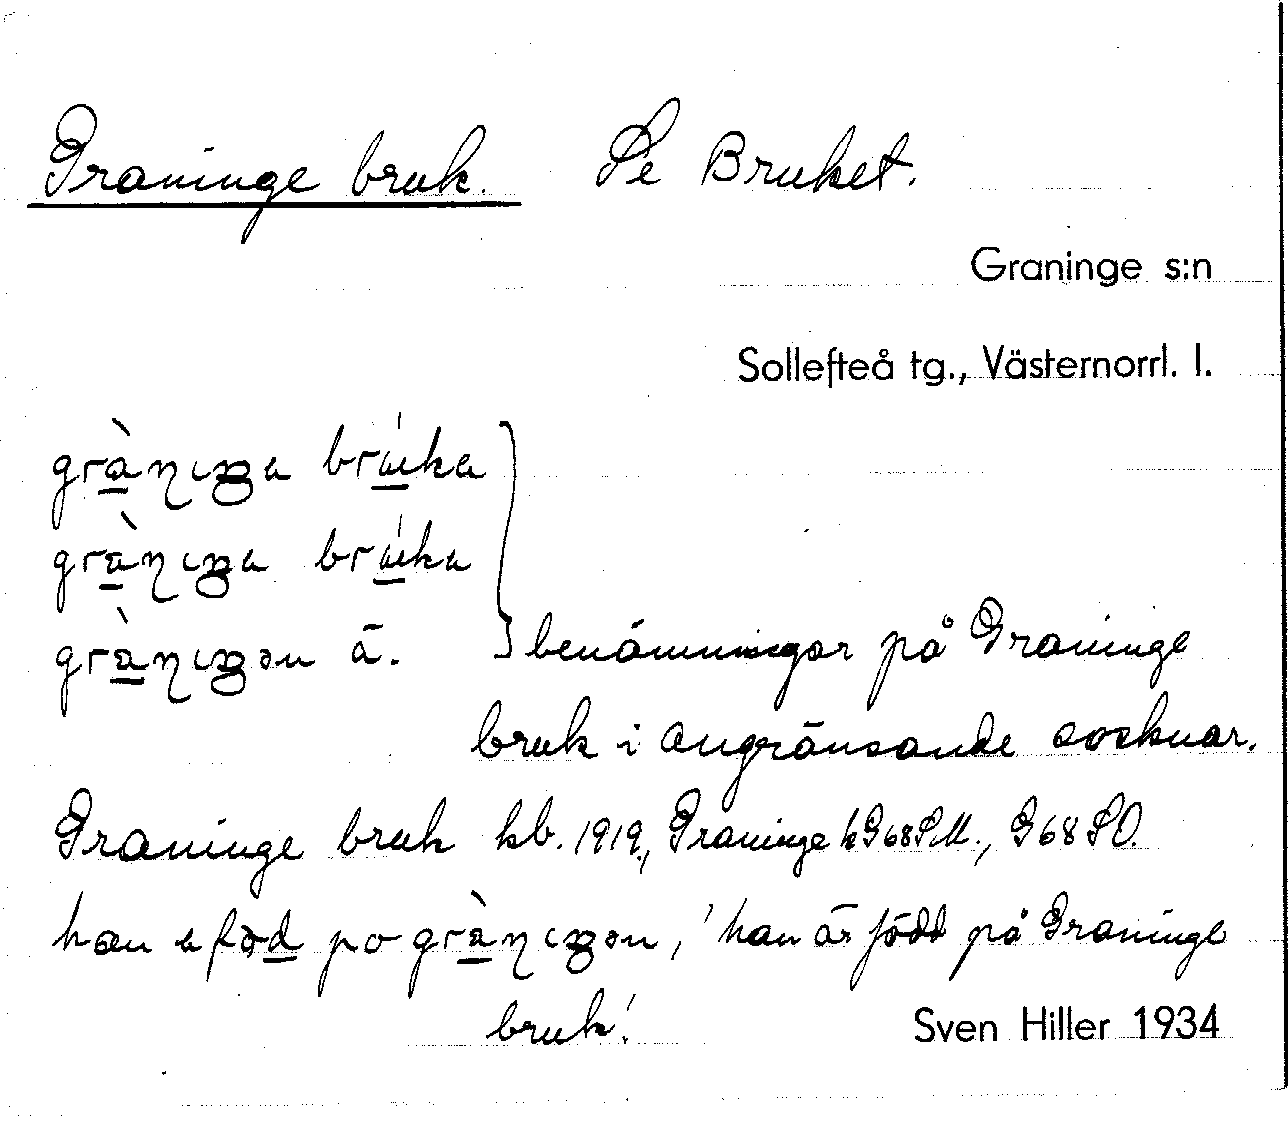 Graninge bruk. Se Bruket.
Graninge s:n
Sollefteå tg., Västernorrl. l.
grànıŋa brúka
grànıŋa brúka
grànıŋən ä.
benämningar på Graninge
bruk i angränsande socknar.
Graninge bruk kb. 1919, Graninge k G68SM., G68SO.
han e föd po grànıŋən, 'han är född på Graninge
bruk'.
Sven Hiller 1934